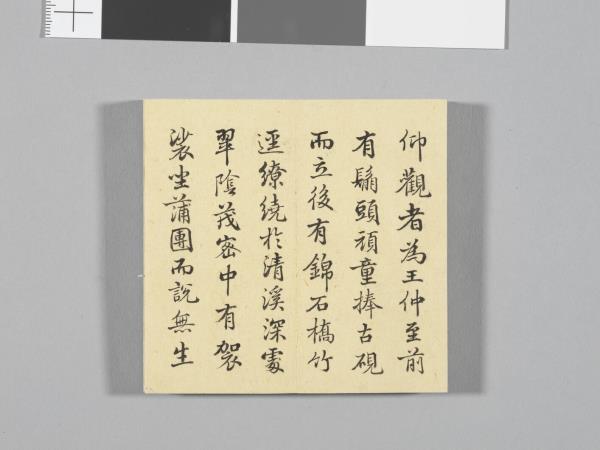 仰觀者為王仲至前
有鬅頭頑童捧古硯
而立後有錦石橋竹
逕繚繞於清溪深處
翠陰茂密中有袈
裟坐蒲團而說無生